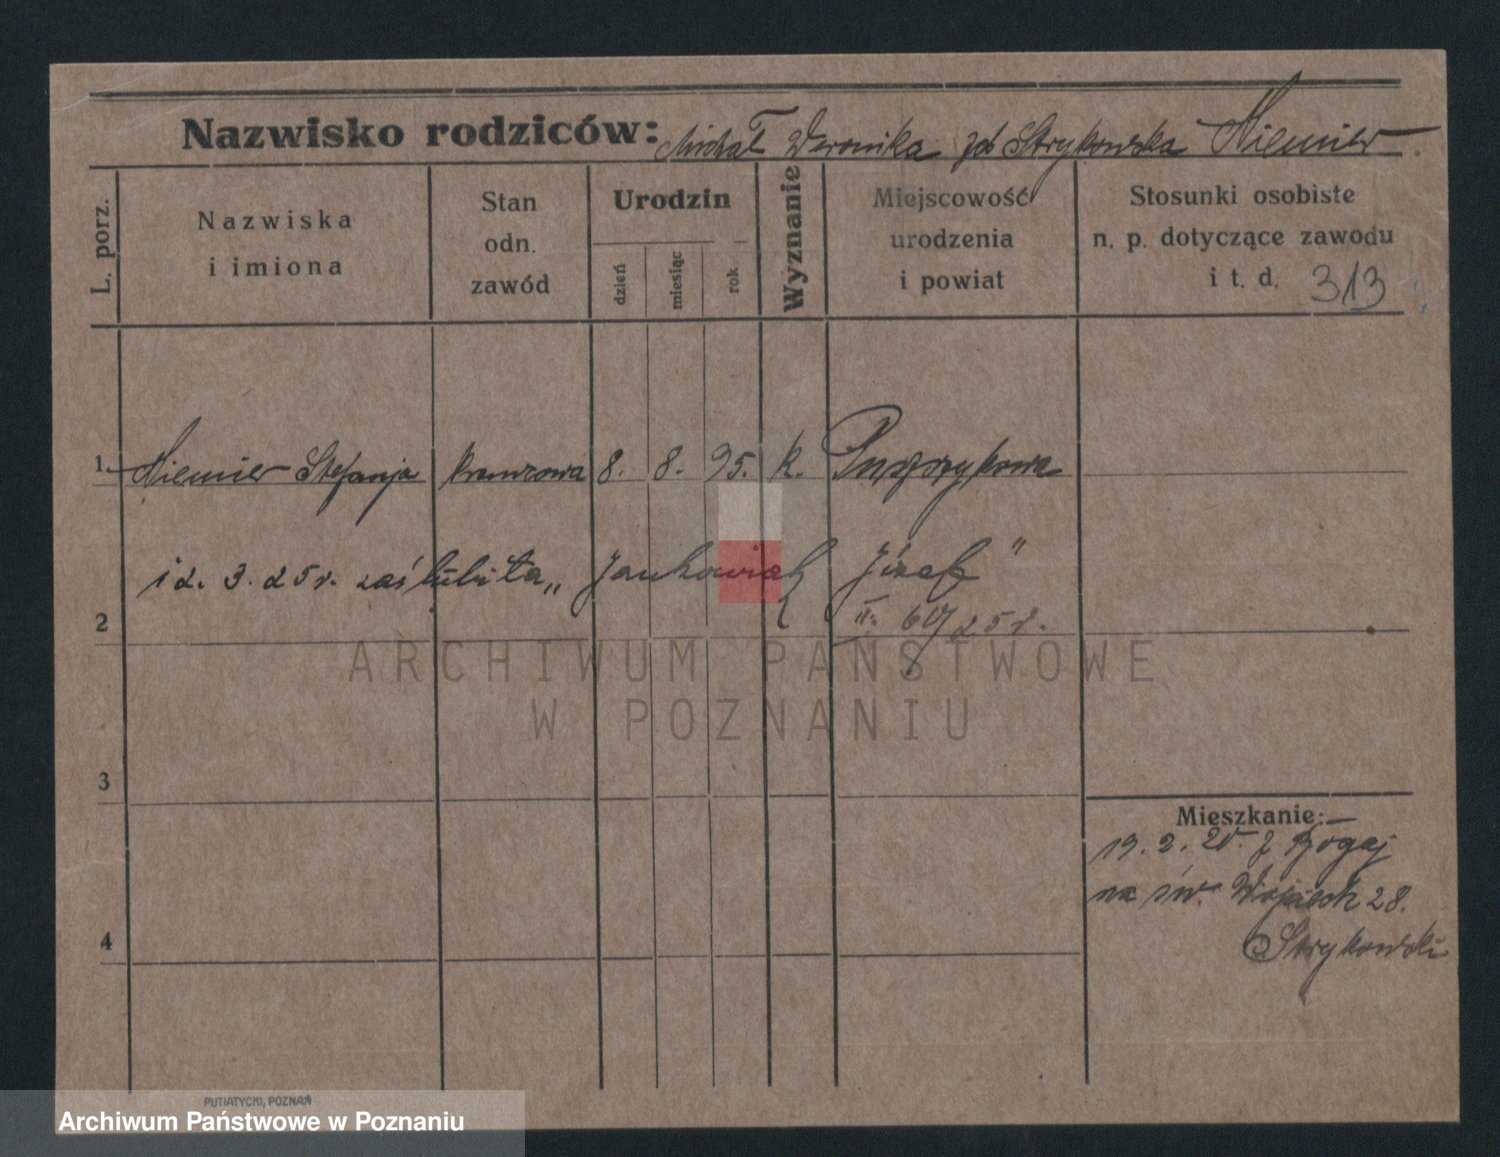 Nazwisko rodziców: Michał Weronika zd Strykowska Niemier
L. porz.
Nazwiska
i imiona
Stan
odn.
zawód
Urodzin
dzień
miesiąc
rok
Wyznanie
Miejscowość
urodzenia
i powiat
Stosunki osobiste
n. p. dotyczące zawodu
i t. d. 313
1. Niemier Stefanja 8. 8. 95. k.
12. 3. 25 r. zaślubiła „Jankowiak Józef"
2
60/25 r.
ARCHIWUM PAŃSTWOWE
W POZNANIU
3
Mieszkanie:
19. 2. 20. z
na św. Wojciech 28.
4
Strykowski
PUTIATYCKI, POZNAŃ
Archiwum Państwowe w Poznaniu